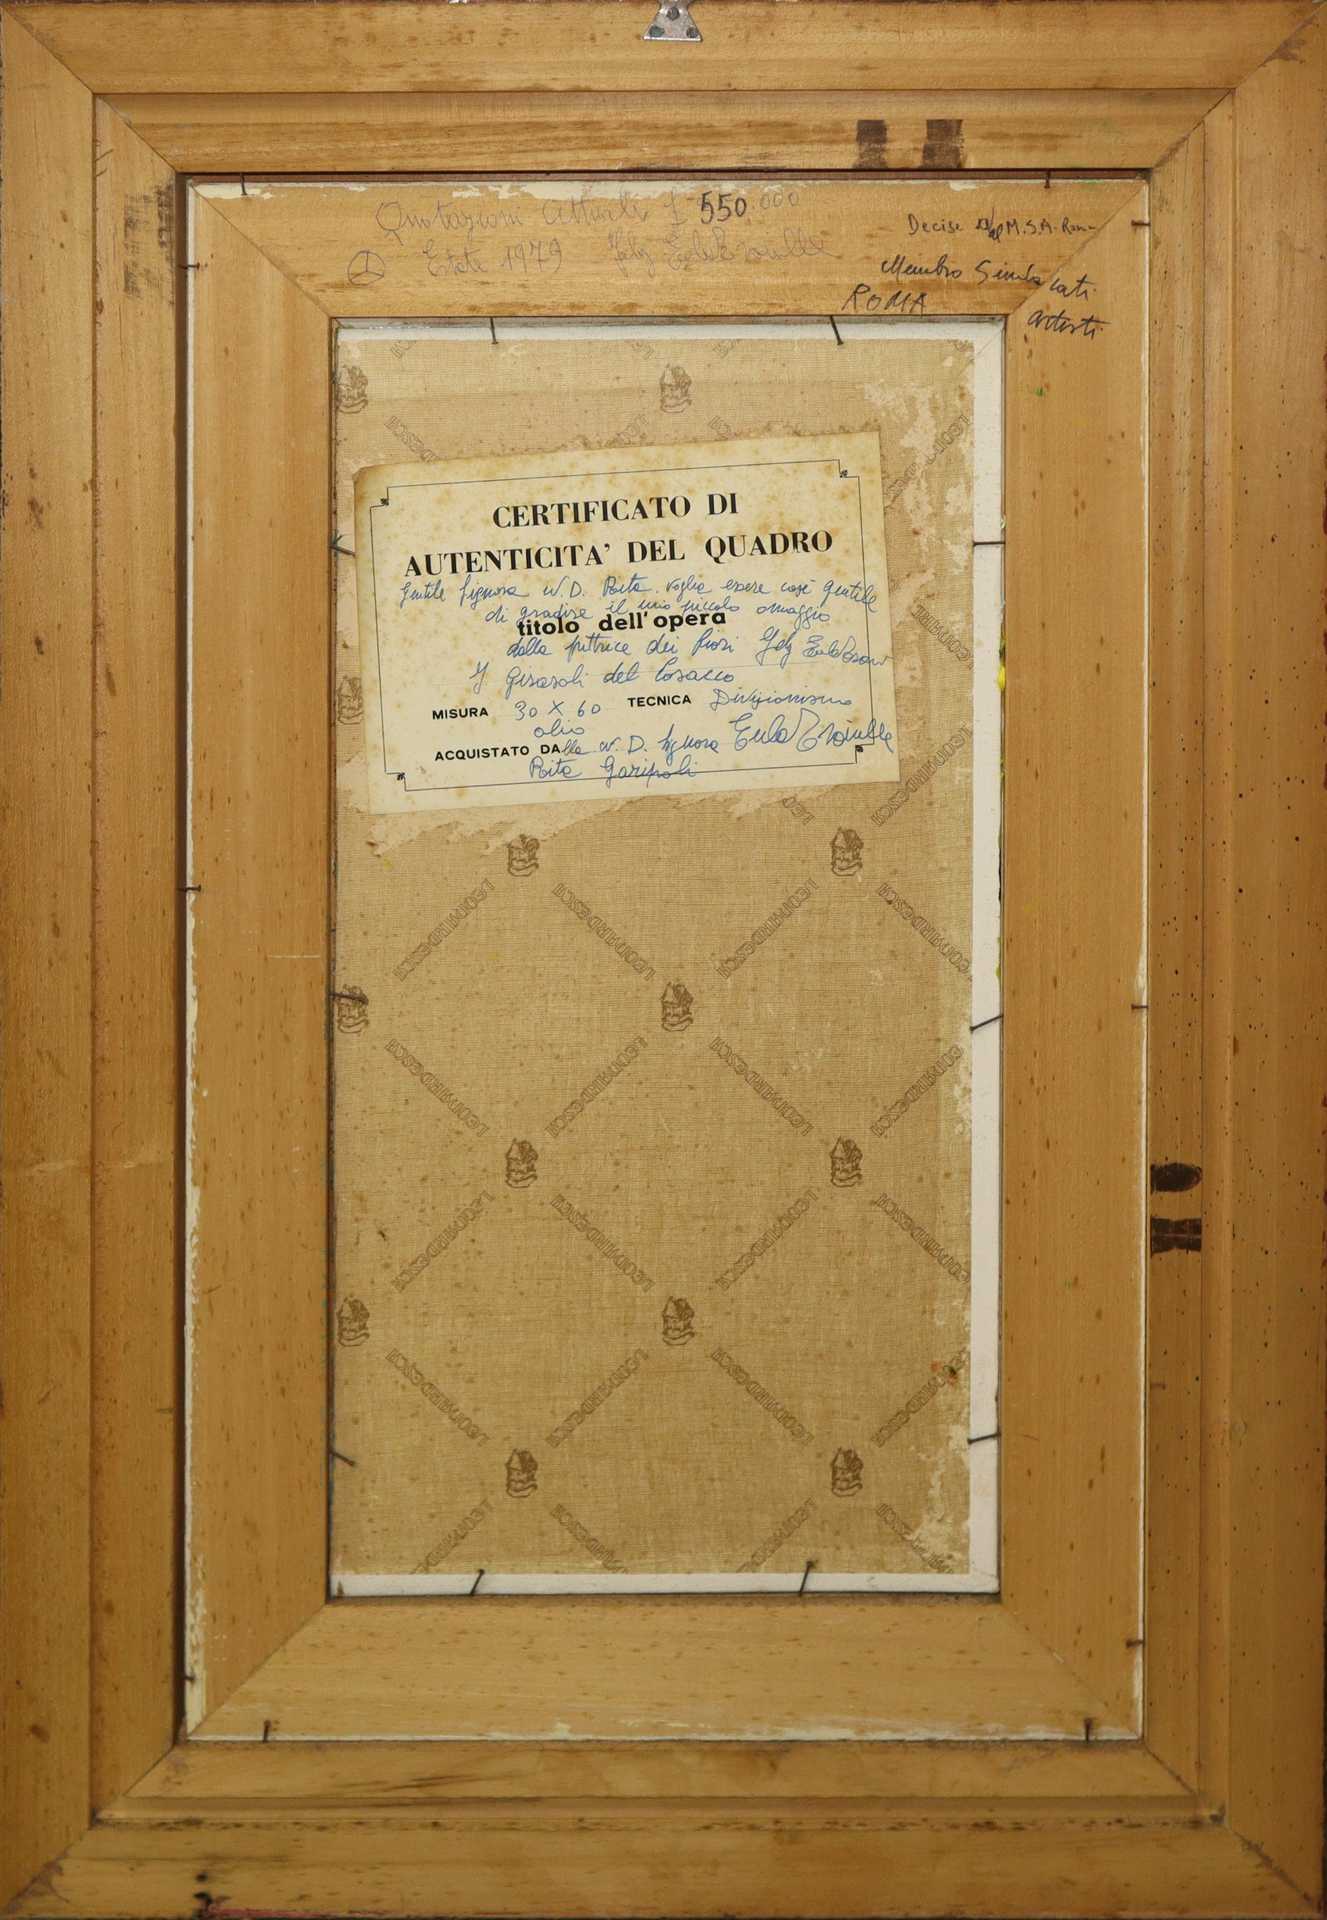 Quotazioni Attuali £ 550.000
Estate 1979
Decise dal M.S.A. Roma
Membro Sindacati
ROMA artisti
CERTIFICATO DI
AUTENTICITA' DEL QUADRO
Gentile Signora N.D. Rita voglia essere così gentile
di gradire il mio piccolo omaggio
titolo dell'opera
dalla pittrice dei fiori
I Girasoli del Cosacco
MISURA 30 X 60 TECNICA Divisionismo
olio
ACQUISTATO DAlla N.D. Signora
Rita Garipoli
LEONARDESCA